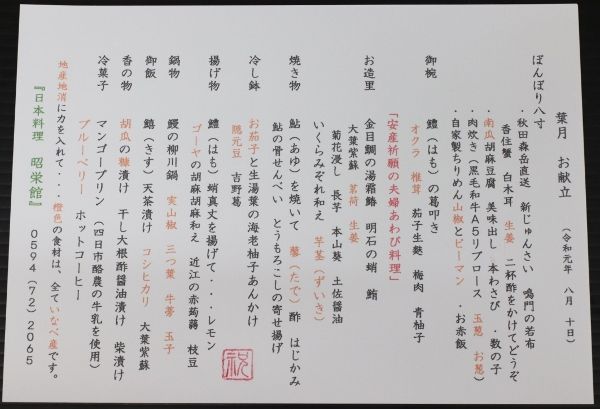 葉月　お献立　（令和元年　八月　十日）
ぼんぼり八寸
・秋田森岳直送　新じゅんさい　鳴門の若布
香住蟹　白木耳　生姜　二杯酢をかけてどうぞ
・南瓜胡麻豆腐　美味出し　本わさび　・数の子
・肉炊き（黒毛和牛A5リブロース　玉葱　お葱）
・自家製ちりめん山椒とピーマン　・お赤飯
御椀　鱧（はも）の葛叩き
オクラ　椎茸　茄子生麩　梅肉　青柚子
「安産祈願の夫婦あわび料理」
お造里　金目鯛の湯霜鱠　明石の蛸　鮪
大葉紫蘇　茗荷　生姜
菊花浸し　長芋　本山葵　土佐醤油
いくらみぞれ和え　芋茎（ずいき）
焼き物　鮎（あゆ）を焼いて　蓼（たで）酢　はじかみ
鮎の骨せんべい　とうもろこしの寄せ揚げ
冷し鉢　お茄子と生湯葉の海老柚子あんかけ
隠元豆　吉野葛
揚げ物　鱧（はも）蛸真丈を揚げて・・・レモン
ゴーヤの胡麻胡麻和え　近江の赤蒟蒻　枝豆
鍋物　鰻の柳川鍋　実山椒　三つ葉　牛蒡　玉子
御飯　鱚（きす）天茶漬け　コシヒカリ　大葉紫蘇
香の物　胡瓜の糠漬け　干し大根酢醤油漬け　柴漬け
冷菓子　マンゴープリン（四日市酪農の牛乳を使用）
ブルーベリー　ホットコーヒー
地産地消に力を入れて・・・橙色の食材は、全ていなべ産です。
『日本料理　昭栄館』　0594（72）2065
祝